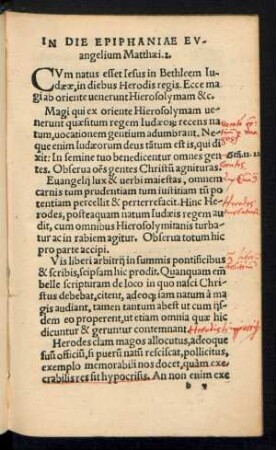 IN DIE EPIPHANIAE EV-
angelium Matthæi.2.
CVm natus esset Iesus in Bethleem Iu-
dææ, in diebus Herodis regis. Ecce ma
gi ab oriente uenerunt Hierosolymam &c.
Magi qui ex oriente Hierosolymam ue-
nerunt quæsitum regem Iudæorũ recens na
tum, uocationem gentium adumbrant. Ne-
que enim Iudæorum deus tãtum est is, qui di-
xit: In semine tuo benedicentur omnes gen-
tes. Obserua oẽs gentes Christũ agnituras.
Gen. 22.
Euangelij lux & uerbi maiestas, omnem
carnis tum prudentiam tum iustitiam tũ po
tentiam percellit & perterrefacit. Hinc He-
rodes, posteaquam natum Iudæis regem au-
dit, cum omnibus Hierosolymitanis turba-
tur ac in rabiem agitur. Obserua totum hic
pro parte accipi.
Herodis
Vis liberi arbitrij in summis pontificibus
& scribis, seipsam hic prodit. Quanquam em̃
belle scripturam de loco in quo nasci Chri-
stus debebat, citent, adeoq́; iam natum à ma
gis audiant, tamen tantum abest ut cum ijs-
dem eo properent, ut etiam omnia quæ hic
dicuntur & geruntur contemnant
Herodes clam magos allocutus, adeoque
suũ officiũ, si puerũ nati resciscat, pollicitus,
exemplo memorabili nos docet, quàm exe-
crabilis res sit hypocrisis. An non enim exe
b v